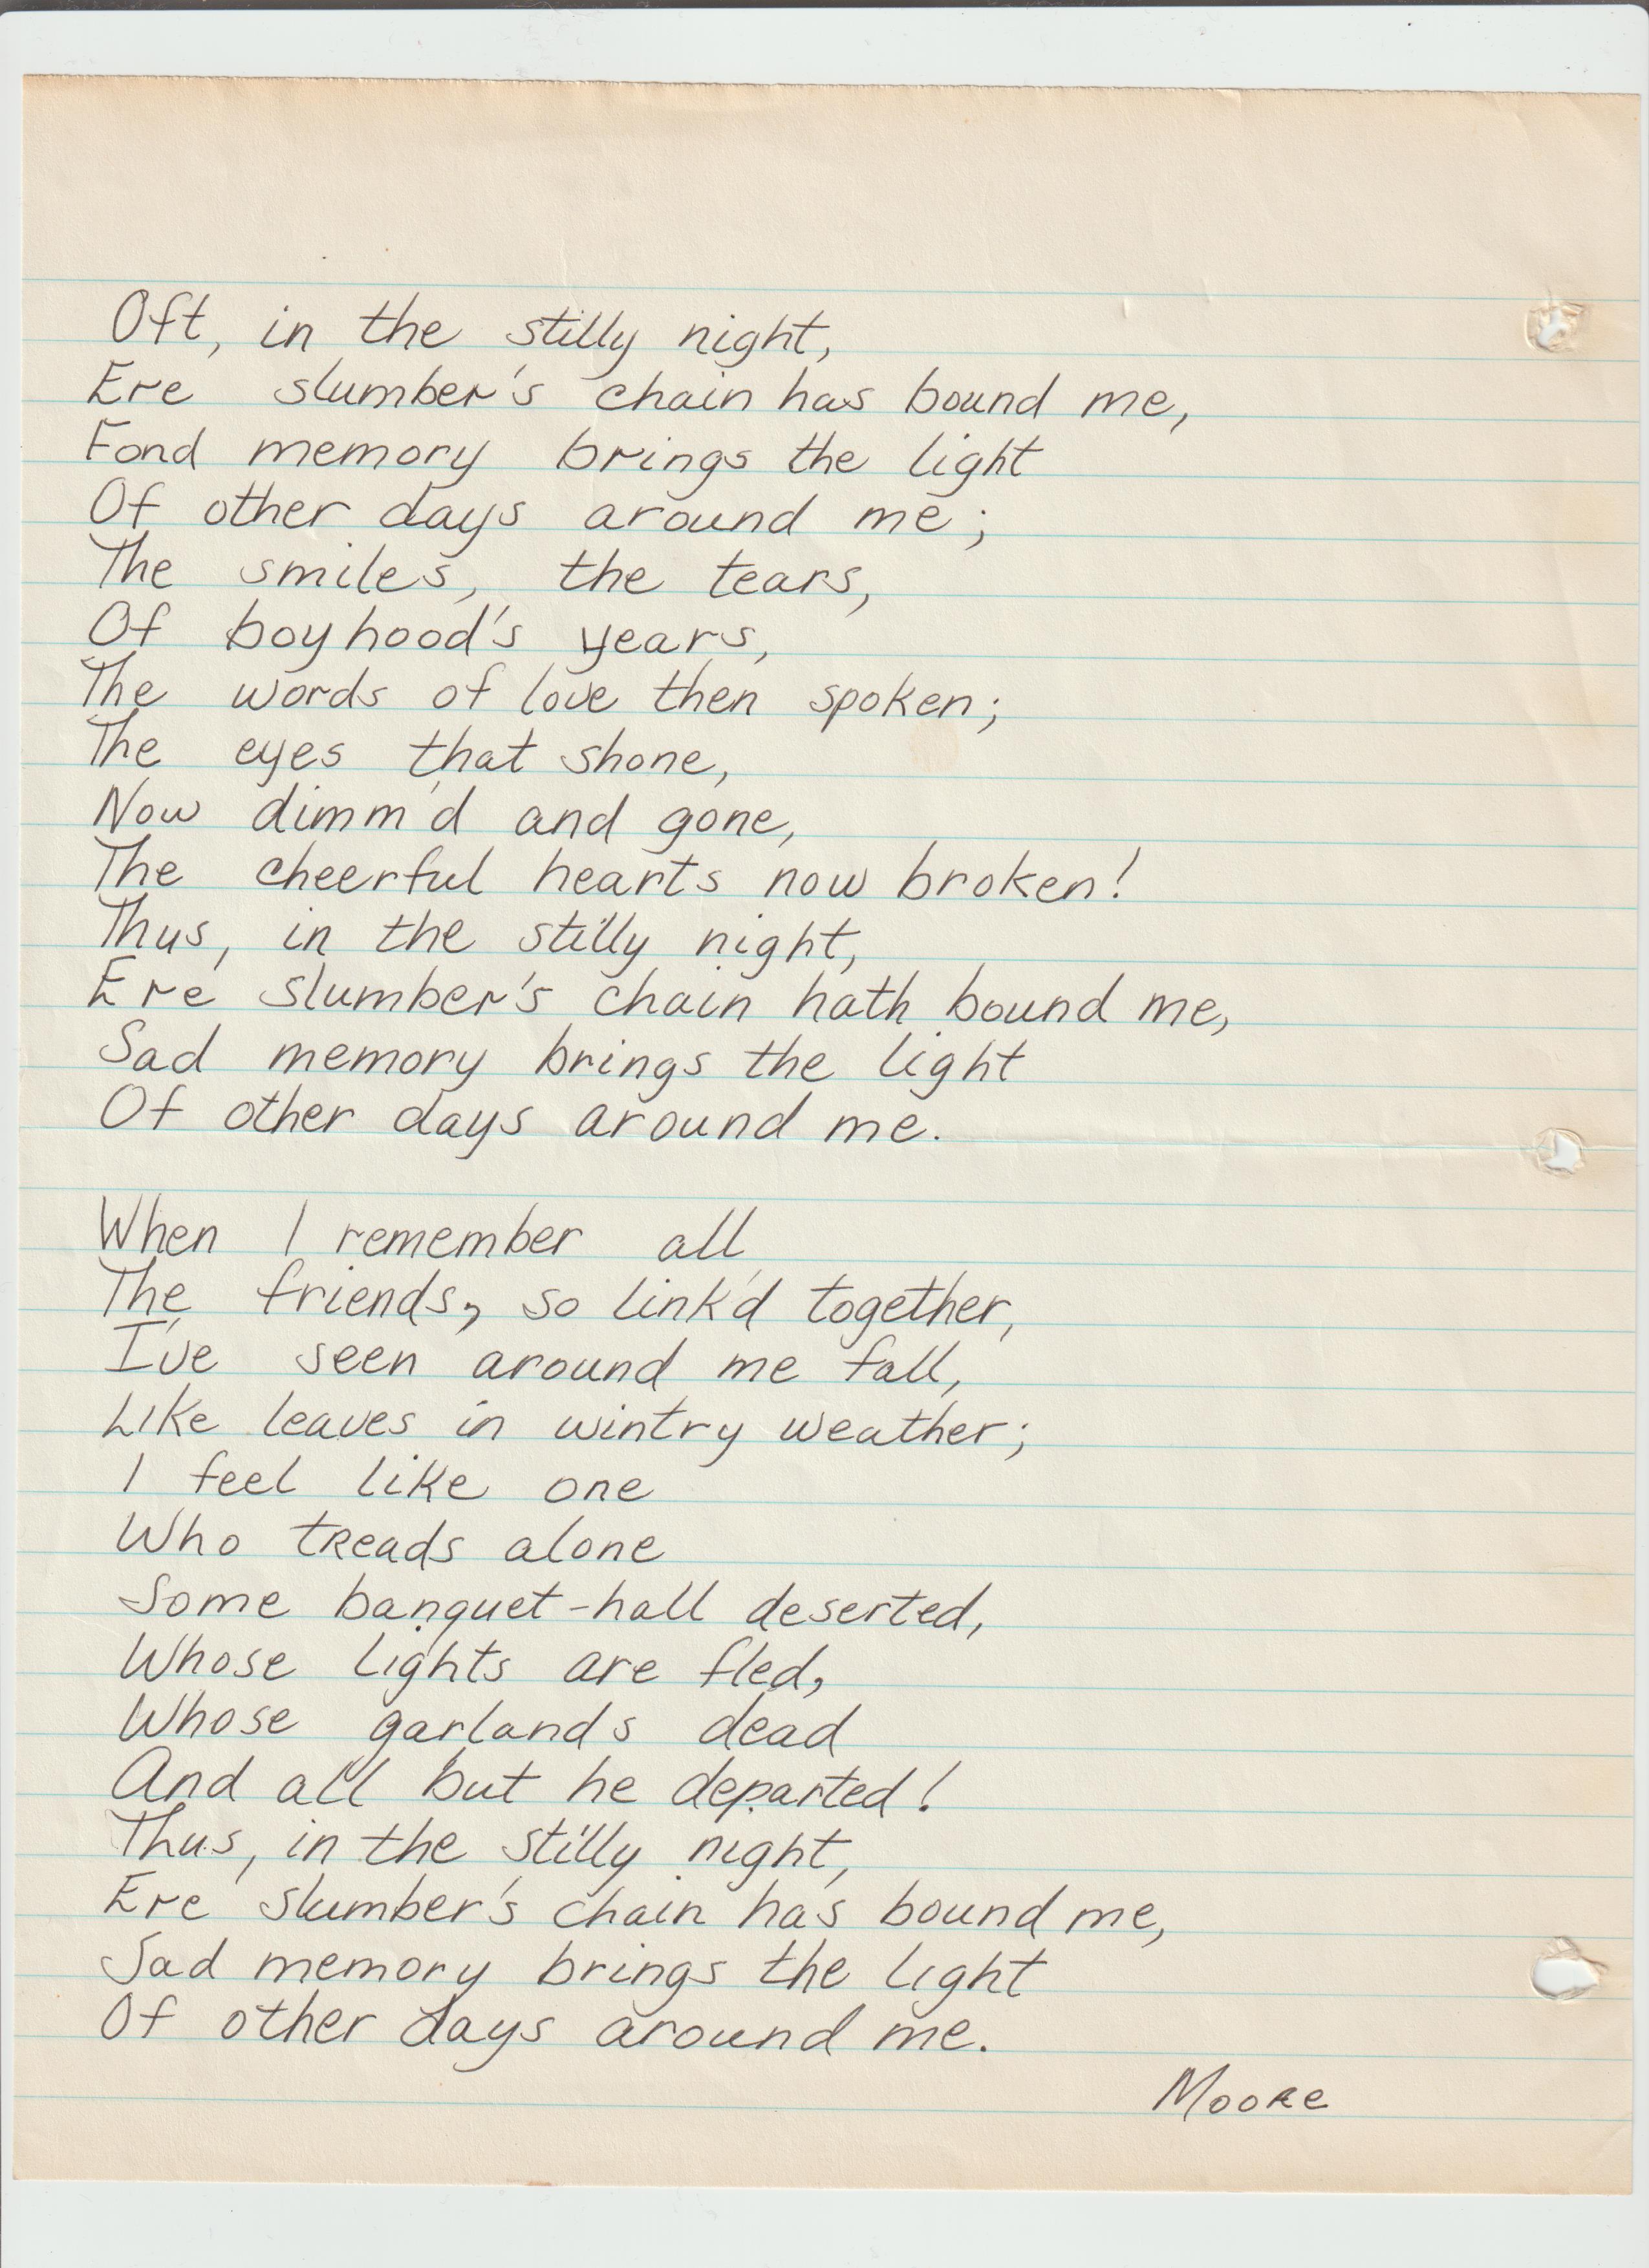 Oft, in the stilly night,
Ere slumber's chain has bound me,
Fond memory brings the light
Of other days around me;
The smiles, the tears,
Of boyhood's years,
The words of love then spoken;
The eyes that shone,
Now dimm'd and gone,
The cheerful hearts now broken!
Thus, in the stilly night,
Ere slumber's chain hath bound me,
Sad memory brings the light
Of other days around me.

When I remember all
The friends, so link'd together,
I've seen around me fall,
Like leaves in wintry weather;
I feel like one
Who treads alone
Some banquet-hall deserted,
Whose lights are fled,
Whose garlands dead
And all but he departed!
Thus, in the stilly night,
Ere slumber's chain has bound me,
Sad memory brings the light
Of other days around me.
Moore